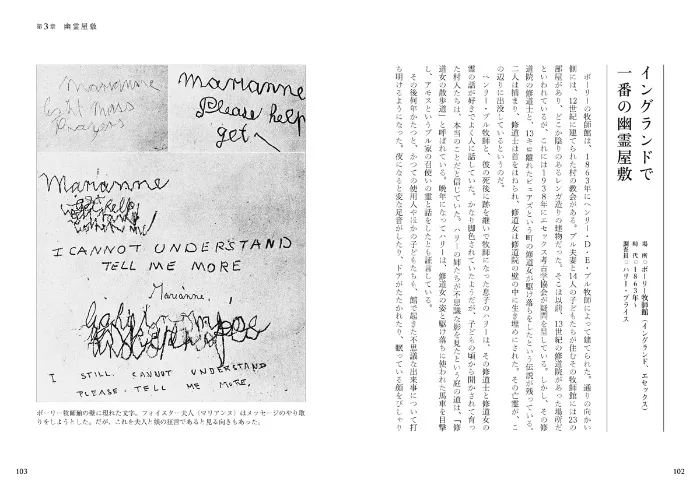 イングランドで
一番の幽霊屋敷
場 所○ボーリー牧師館(イングランド、エセックス)
時 代○1863年〜
調査員○ハリー・プライス
ボーリーの牧師館は、1863年にヘンリー・D・E・ブル牧師によって建てられた。通りの向かい
側には、12世紀に建てられた村の教会がある。ブル夫妻と14人の子どもたちが住むその牧師館には23の
部屋があり、どこか陰りのあるレンガ造りの建物だった。そこは以前、13世紀の修道院があった場所だ
といわれているが、これには1938年にエセックス考古学協会が疑問を呈している。しかし、その修
道院の修道士と、13キロ離れたビュアズという町の修道女が駆け落ちをしたという伝説が残っている。
二人は捕まり、修道士は首をはねられ、修道女は修道院の壁の中に生き埋めにされた。その亡霊が、こ
の辺りに出没しているというのだ。
ヘンリー・ブル牧師と、彼の死後に跡を継いで牧師になった息子のハリーは、その修道士と修道女の
霊の話が好きでよく人に話していた。かなり脚色されていたようだが、子どもの頃から聞かされて育っ
た村人たちは、本当のことだと信じていた。ハリーの姉たちが不思議な影を見たという庭の道は、「修
道女の散歩道」と呼ばれている。晩年になってハリーは、修道女の姿と駆け落ちに使われた馬車を目撃
し、アモスというブル家の召使いの霊と話をしたとも証言している。
その後何年かたつと、かつての使用人やほかの子どもたちも、館で起きた不思議な出来事について打
ち明けるようになった。夜になると変な足音がしたり、ドアがたたかれたり、眠っている顔をぴしゃり
102
第3章 幽霊屋敷
Marianne
light mass
Prayers
Marianne
Please help
get
Marianne
get help
I CANNOT UNDERSTAND
TELL ME MORE
Marianne,
I STILL CANNOT UNDERSTAND
PLEASE TELL ME MORE.
ボーリー牧師館の壁に現れた文字。フォイスター夫人(マリアンヌ)はメッセージのやり取
りをしようとした。だが、これを夫人と娘の狂言であると見る向きもあった。
103